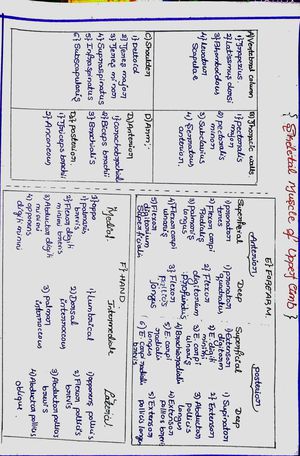 { Skeletal Muscle of Upper Limb }
A) Vertebral column
1) Trapezius
2) Latissimus dorsi
3) Rhomboideus
4) Levatour
Scapulae
B) Thoracic walls
1) Pectoralis
major
2) pectoralis
minor
3) Subclavius
4) Serratous
anterior.
C) Shoulder
1) Deltoid
2) Teres major
3) Teres minor
4) Supraspinatus
5) Infraspinatus
6) Subscapularis
D) Arm;
A) Anterior
2) Biceps brachii
3) Brachialis
B) posterior.
1) Triceps brachii
2) Anconeus
E) FOREARM
Anterior
Superficial
1) pronator
teres
2) Flexor carpi
Radialis
3) palmaris
longus
4) Flexor carpi
ulnaris
5) Flexor
digitorum
superficialis
Deep
1) pronator
quadratus
2) Flexor
digitorum
profundus
3) Flexor
pollicis
longus
posterior
Superficial
1) Extensor
digitorum
2) E. digiti
minimi
3) E. carpi
ulnaris
4) Brachioradialis
5) E. carpi
radialis
longus
6) E. carpi radialis
brevis
Deep
1) Supinator
2) Extensor
3) Abductor
pollicis
longus
4) Extensor
pollicis brevis
5) Extensor
pollicis longus
F) HAND
Medial
1) palmaris
brevis
2) Flexor digiti
minimi brevis
3) Abductor digiti
minimi
4) opponens
digiti minimi
Intermediate
1) Lumbrical
2) Dorsal
interosseous
3) palmar
interosseous
Lateral
1) opponens pollicis
2) Flexor pollicis
brevis
3) Abductor pollicis
brevis
4) Adductor pollicis
oblique.